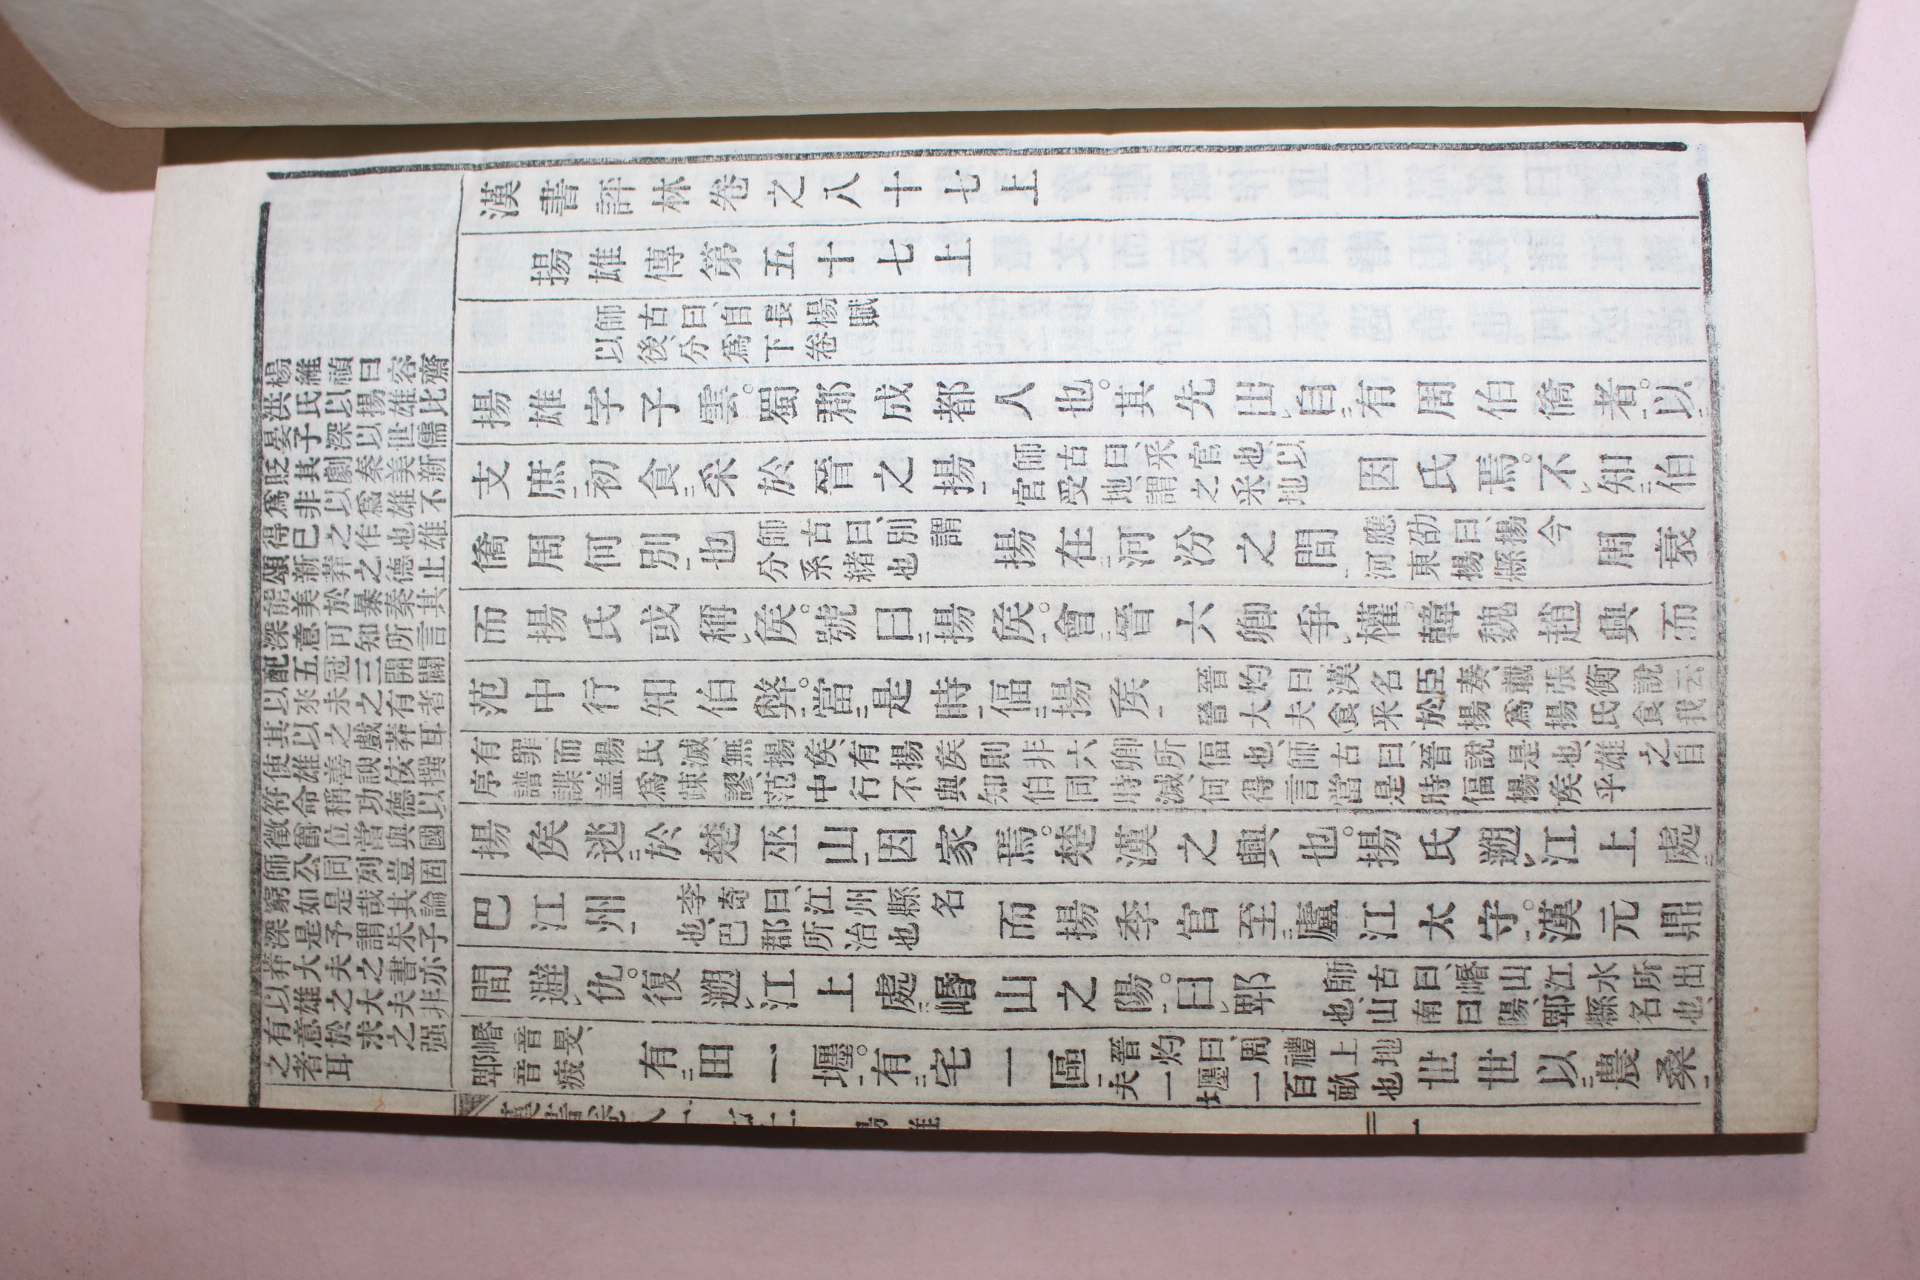 楊維禎曰容齋
洪氏以揚雄比
晏子深以世儒
貶其劇秦美新
爲非以爲雄不
得已之作也雄
頌新莽之德止
能美於暴秦其
深意可知所言
配五冠三開闢
以來未之有者
其以之戲莽耳
使雄善諛佞撰
符命稱功德以
徵爵位當與國
師公同列豈固
窮如是哉其論
深是予謂朱子
莽大夫之書亦
以雄之大夫非
有意於求之强
之者耳
漢書評林卷之八十七上
揚雄傳第五十七上
師古曰、自長楊賦
以後、分爲下卷
揚雄字子雲。蜀郡成都人也。其先出自有周伯僑者。以
支庶初食采於晉之揚師古曰、采官也、以官受地、謂之采地因氏焉。不知伯
僑周何別也師古曰、別謂分系緒也揚在河汾之間應劭曰、揚今河東揚縣周衰
而揚氏或稱矦。號曰揚矦。會晉六卿爭權。韓魏趙興而
范中行知伯弊。當是時偪揚矦晉灼曰、漢名臣奏、載張衡說云晉大夫食采於揚爲揚氏食我
有罪、而揚氏滅、無揚矦、有揚矦則非六卿所偪也、師古曰、晉說是也、雄之自
序譜諜、盖爲踈謬、范中行不與知伯同時滅、何得言當是時偪揚矦乎
揚矦逃於楚巫山因家焉。楚漢之興也。揚氏遡江上處
巴江州李奇曰、江州縣名也、巴郡所治也而揚季官至廬江太守。漢元鼎
間避仇。復遡江上處崏山之陽。曰郫師古曰、崏山江水所出也、山南曰陽郫縣名也、
崏音旻、郫音疲有田一㙻。有宅一區晉灼曰、周禮上地夫一㙻一百畝也世世以農桑
漢書卷八十七上
揚雄
一